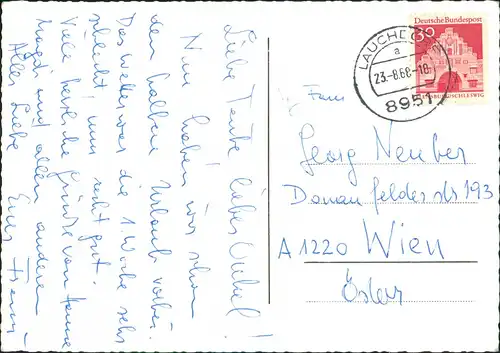 Liebe Tante, lieber Onkel!
Nun haben wir schon
den halben Urlaub vorbei.
Das Wetter war die 1. Woche sehr
schlecht, nun recht gut.
Viele herzliche Grüße von
und allen anderen
Alles Liebe
Eure
Deutsche Bundespost
30
FLENSBURG/SCHLESWIG
LAUCHD
a
23.-8.68-18
8951
Georg Neuber
Donaufelderstr 193
A 1220 Wien
Österr